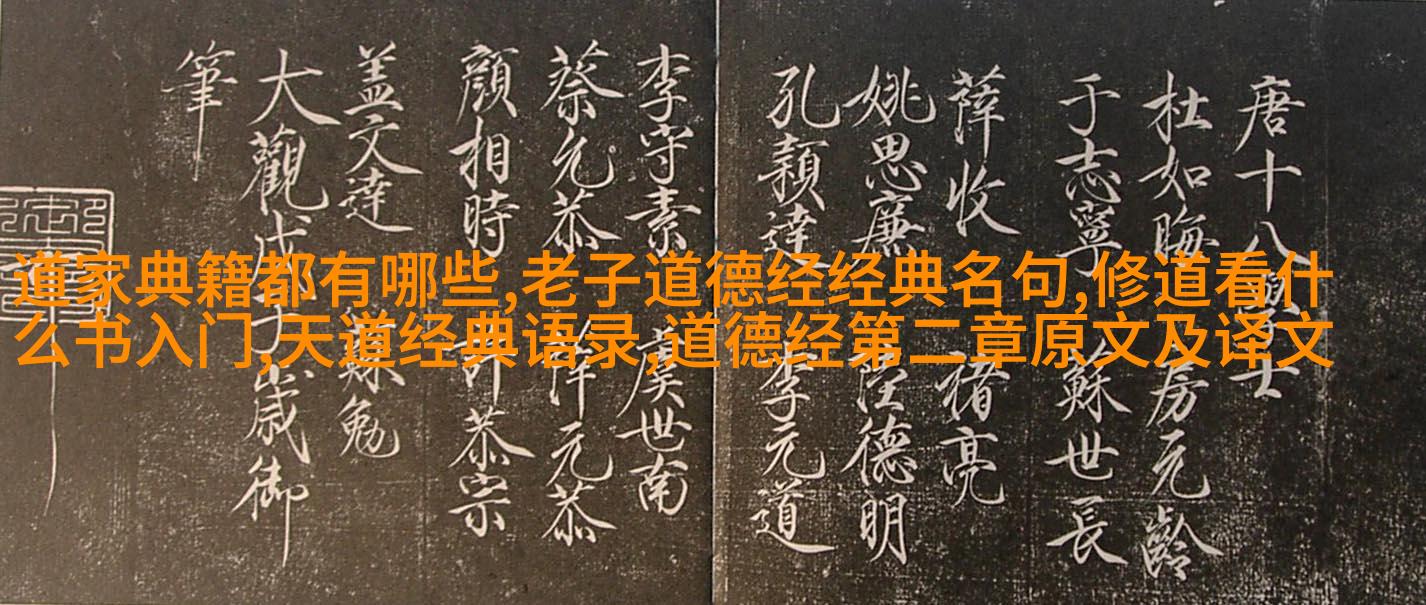 唐十八學士
杜如晦 房元齡
于志寧 蘇世長
薛收 褚亮
姚思廉 陸德明
孔穎達 李元道
李守素 虞世南
蔡允恭 薛元恭
顏相時 許恭宗
盖文達 蘇勉
大觀戊子歲御
筆
道家典籍都有哪些,老子道德经经典名句,修道看什
么书入门,天道经典语录,道德经第二章原文及译文